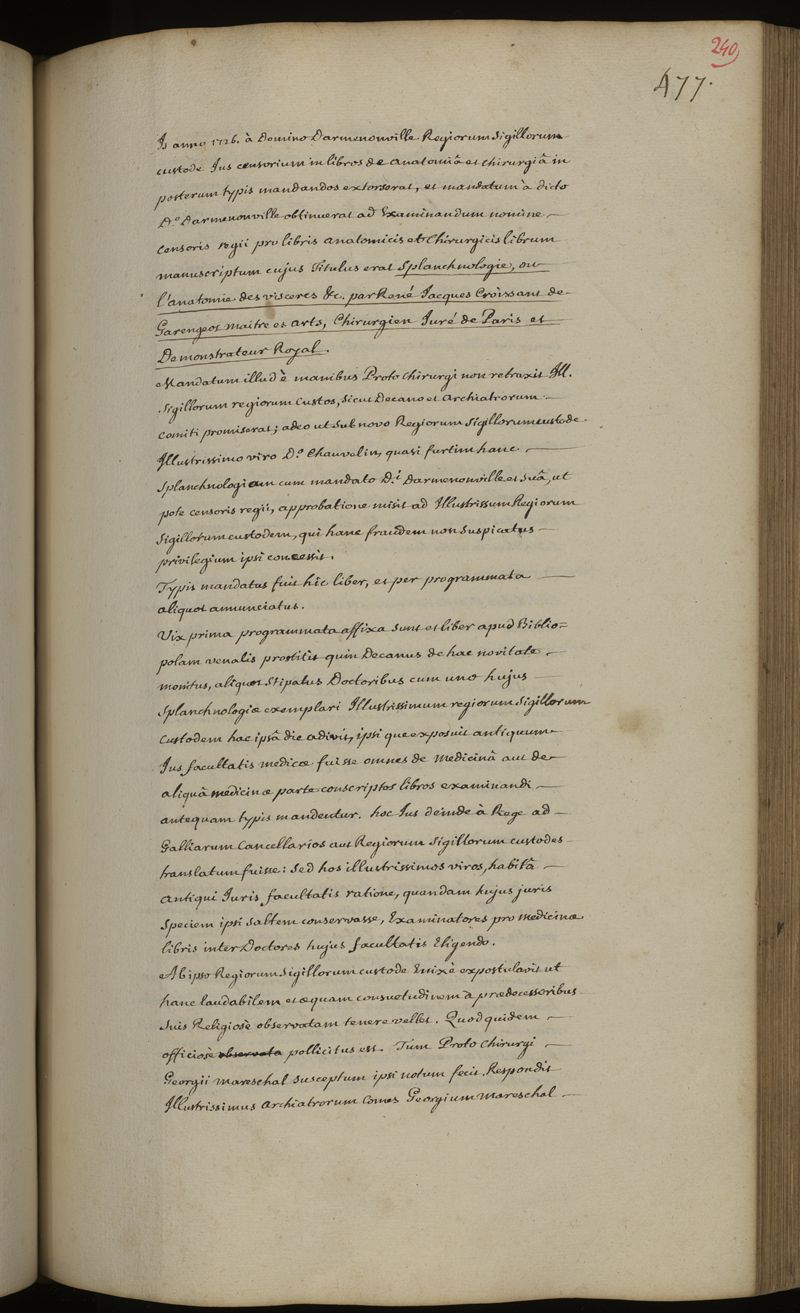 240
477.
Is anno 1726. à Domino Darmenonville Regiorum Sigillorum
custode Jus censorium in libros de anatomiâ et chirurgiâ in
posterum typis mandandos extorserat, et mandatum à dicto
D.o Darmenonville obtinuerat ad Examinandum nomine
Censoris regii pro libris anatomicis et Chirurgicis librum
manuscriptum cujus Titulus erat Splanchnologie, ou
l'anatomie des visceres &c. par René Jacques Croissant de
Garengeot maitre es arts, Chirurgien Juré de Paris et
Demonstrateur Royal.
Mandatum illud è manibus Proto Chirurgi non retraxit Ill.
Sigillorum regiorum Custos, sicut Decano et Archiatrorum
Comiti promiserat; adeo ut sub novo Regiorum Sigillorum custode
Illustrissimo viro D.o Chauvelin, quasi furtim hanc
Splanchnologiam cum mandato D.i Darmenonville et suâ, ut
pote censoris regii, approbatione misit ad Illustrissum Regiorum
Sigillorum custodem, qui hanc fraudem non suspicatus
privilegium ipsi concessit.
Typis mandatus fuit hic liber, et per programmata
aliquot annunciatus.
Vix prima programmata affixa sunt et liber apud Biblio=
polam venalis prostitit quin Decanus de hac novitate
monitus, aliquot stipatus Doctoribus cum uno hujus
Splanchnologiæ exemplari Illustrissimum regiorum Sigillorum
Custodem hac ipsâ die adivit, ipsi que exposuit antiquum
Jus facultatis medicæ fuisse omnes de medicinâ aut de
aliquâ medicinæ parte conscriptos libros examinandi
antequam typis mandentur. hoc Jus deinde à Rege ad
Galliarum Cancellarios aut Regiorum Sigillorum custodes
translatum fuisse: Sed hos illustrissimos viros, habitâ
antiqui Juris facultatis ratione, quandam hujus juris
Speciem ipsi saltem conservasse, Examinatores pro medicinæ
libris inter Doctores hujus facultatis Eligendo.
Ab ipso Regiorum Sigillorum custode Enixè expostulavit ut
hanc laudabilem et æquam consuetudinem à prædecessoribus
suis Religiosè observatam tenere vellet. Quod quidem
officiosè observata pollicitus est. Tum Proto Chirurgi
Georgii Mareschal susceptum ipsi notum fecit. Respondit
Illustrissimus Archiatrorum Comes Georgium Mareschal